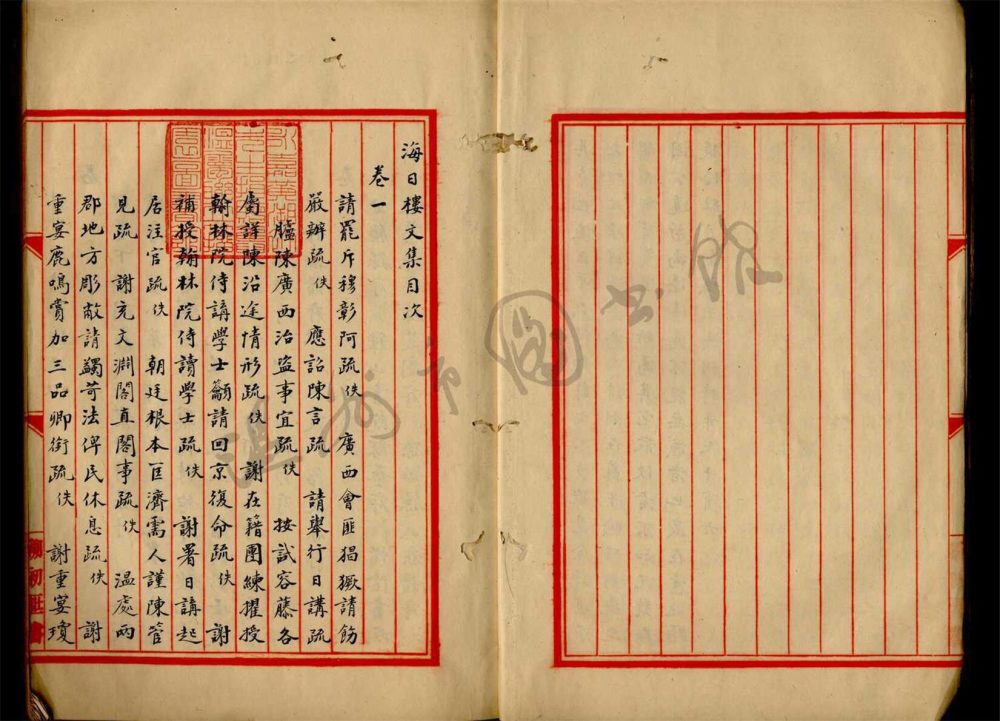 海日樓文集目次
卷一
請罷斥穆彰阿疏佚　廣西會匪猖獗請飭
嚴辦疏佚　應詔陳言疏　請舉行日講疏
臚陳廣西治盜事宜疏佚　按試容藤各
屬詳陳沿途情形疏佚　謝在籍團練擢授
翰林院侍講學士籲請回京復命疏佚　謝
補授翰林院侍讀學士疏佚　謝署日講起
居注官疏佚　朝廷根本匡濟需人謹陳管
見疏　謝充文淵閣直閣事疏佚　溫處兩
郡地方彫敝請蠲苛法俾民休息疏佚　謝
重宴鹿鳴賞加三品卿銜疏佚　謝重宴瓊
溫州市圖書館